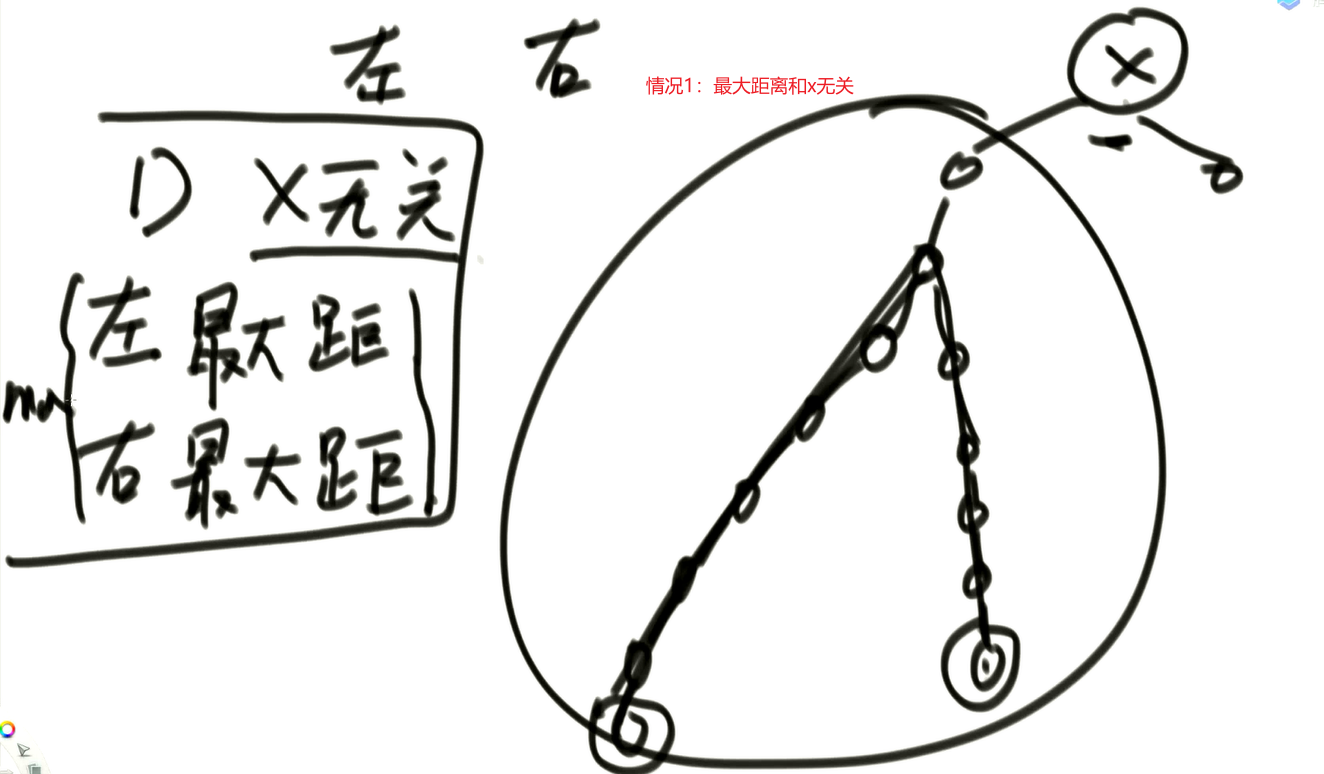 左 右
情况1：最大距离和x无关
X
1) X无关
max
左最大距
右最大距